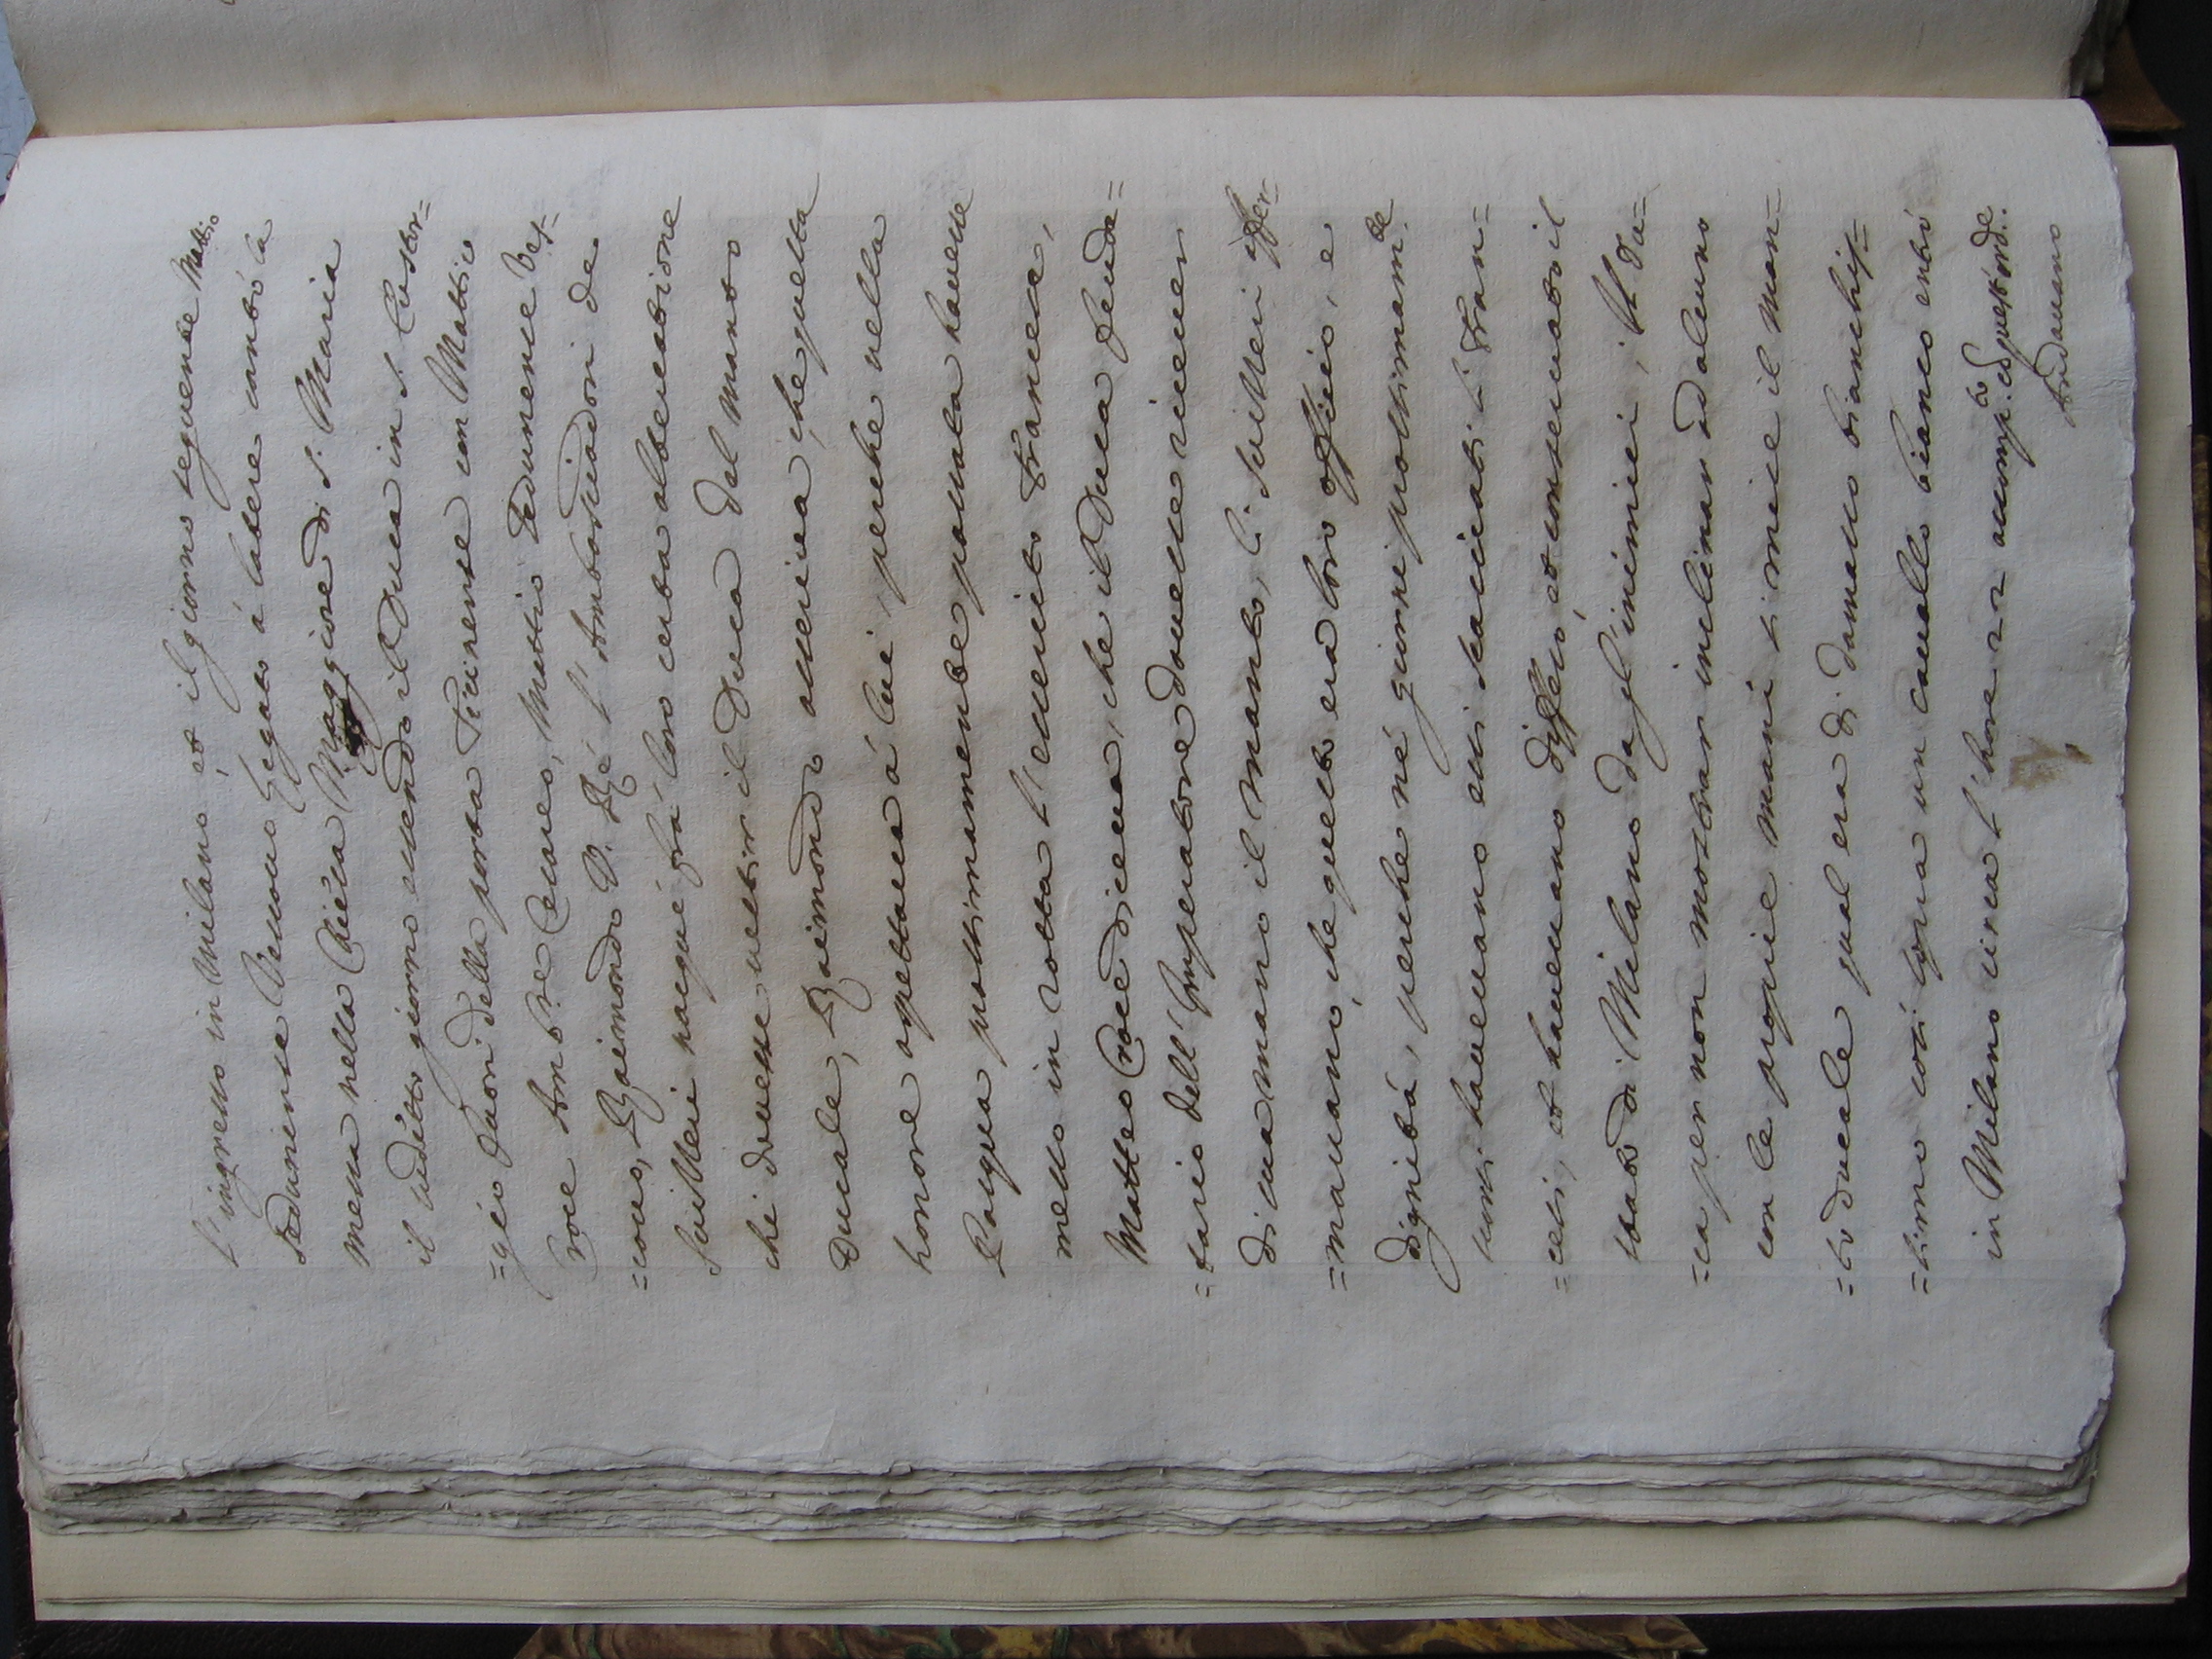 l'ingresso in Milano, et il giorno seguente Mattio
Sedunense Vescovo Legato à latere cantò la
messa nella Chiesa Maggiore di S. Maria
il sudetto giorno essendo il Duca in S. Eustor=
=gio fuori della porta Ticinense con Mattio
Vescovo Sedunense
Croce Ambr.e
=covo, Raimondo V. Rè l'Ambasciadori de
Suizzeri nacque frà loro certa altercatione
chi dovesse vestir il Duca del manto
Ducale, Raimondo asseriva, che questa
honore aspettava à lui, perche nella
Pasqua prossimamente passata havesse
messo in rotta l'essercito Francese,
Matteo Croce diceva, che il Duca feuda=
=tario dell'Imperatore dovesse ricever
di sua mano il manto, li Suizzeri affer=
=mavano, che questo era loro officio, e
dignità, perche nè giorni prossimam.te
havevano essi scacciati li Fran=
=cesi, et havevano diffeso, et conservato il
stato di Milano da gl'inimici, il Du=
=ca per non mostrar inclinar ad alcuno
con le proprie mani si mise il man=
=to ducale qual era di damasco bianchis=
=simo così sopra un cavallo bianco entrò
in Milano circa l'hore 22 accomp.to con quest'ord.e
Andavano